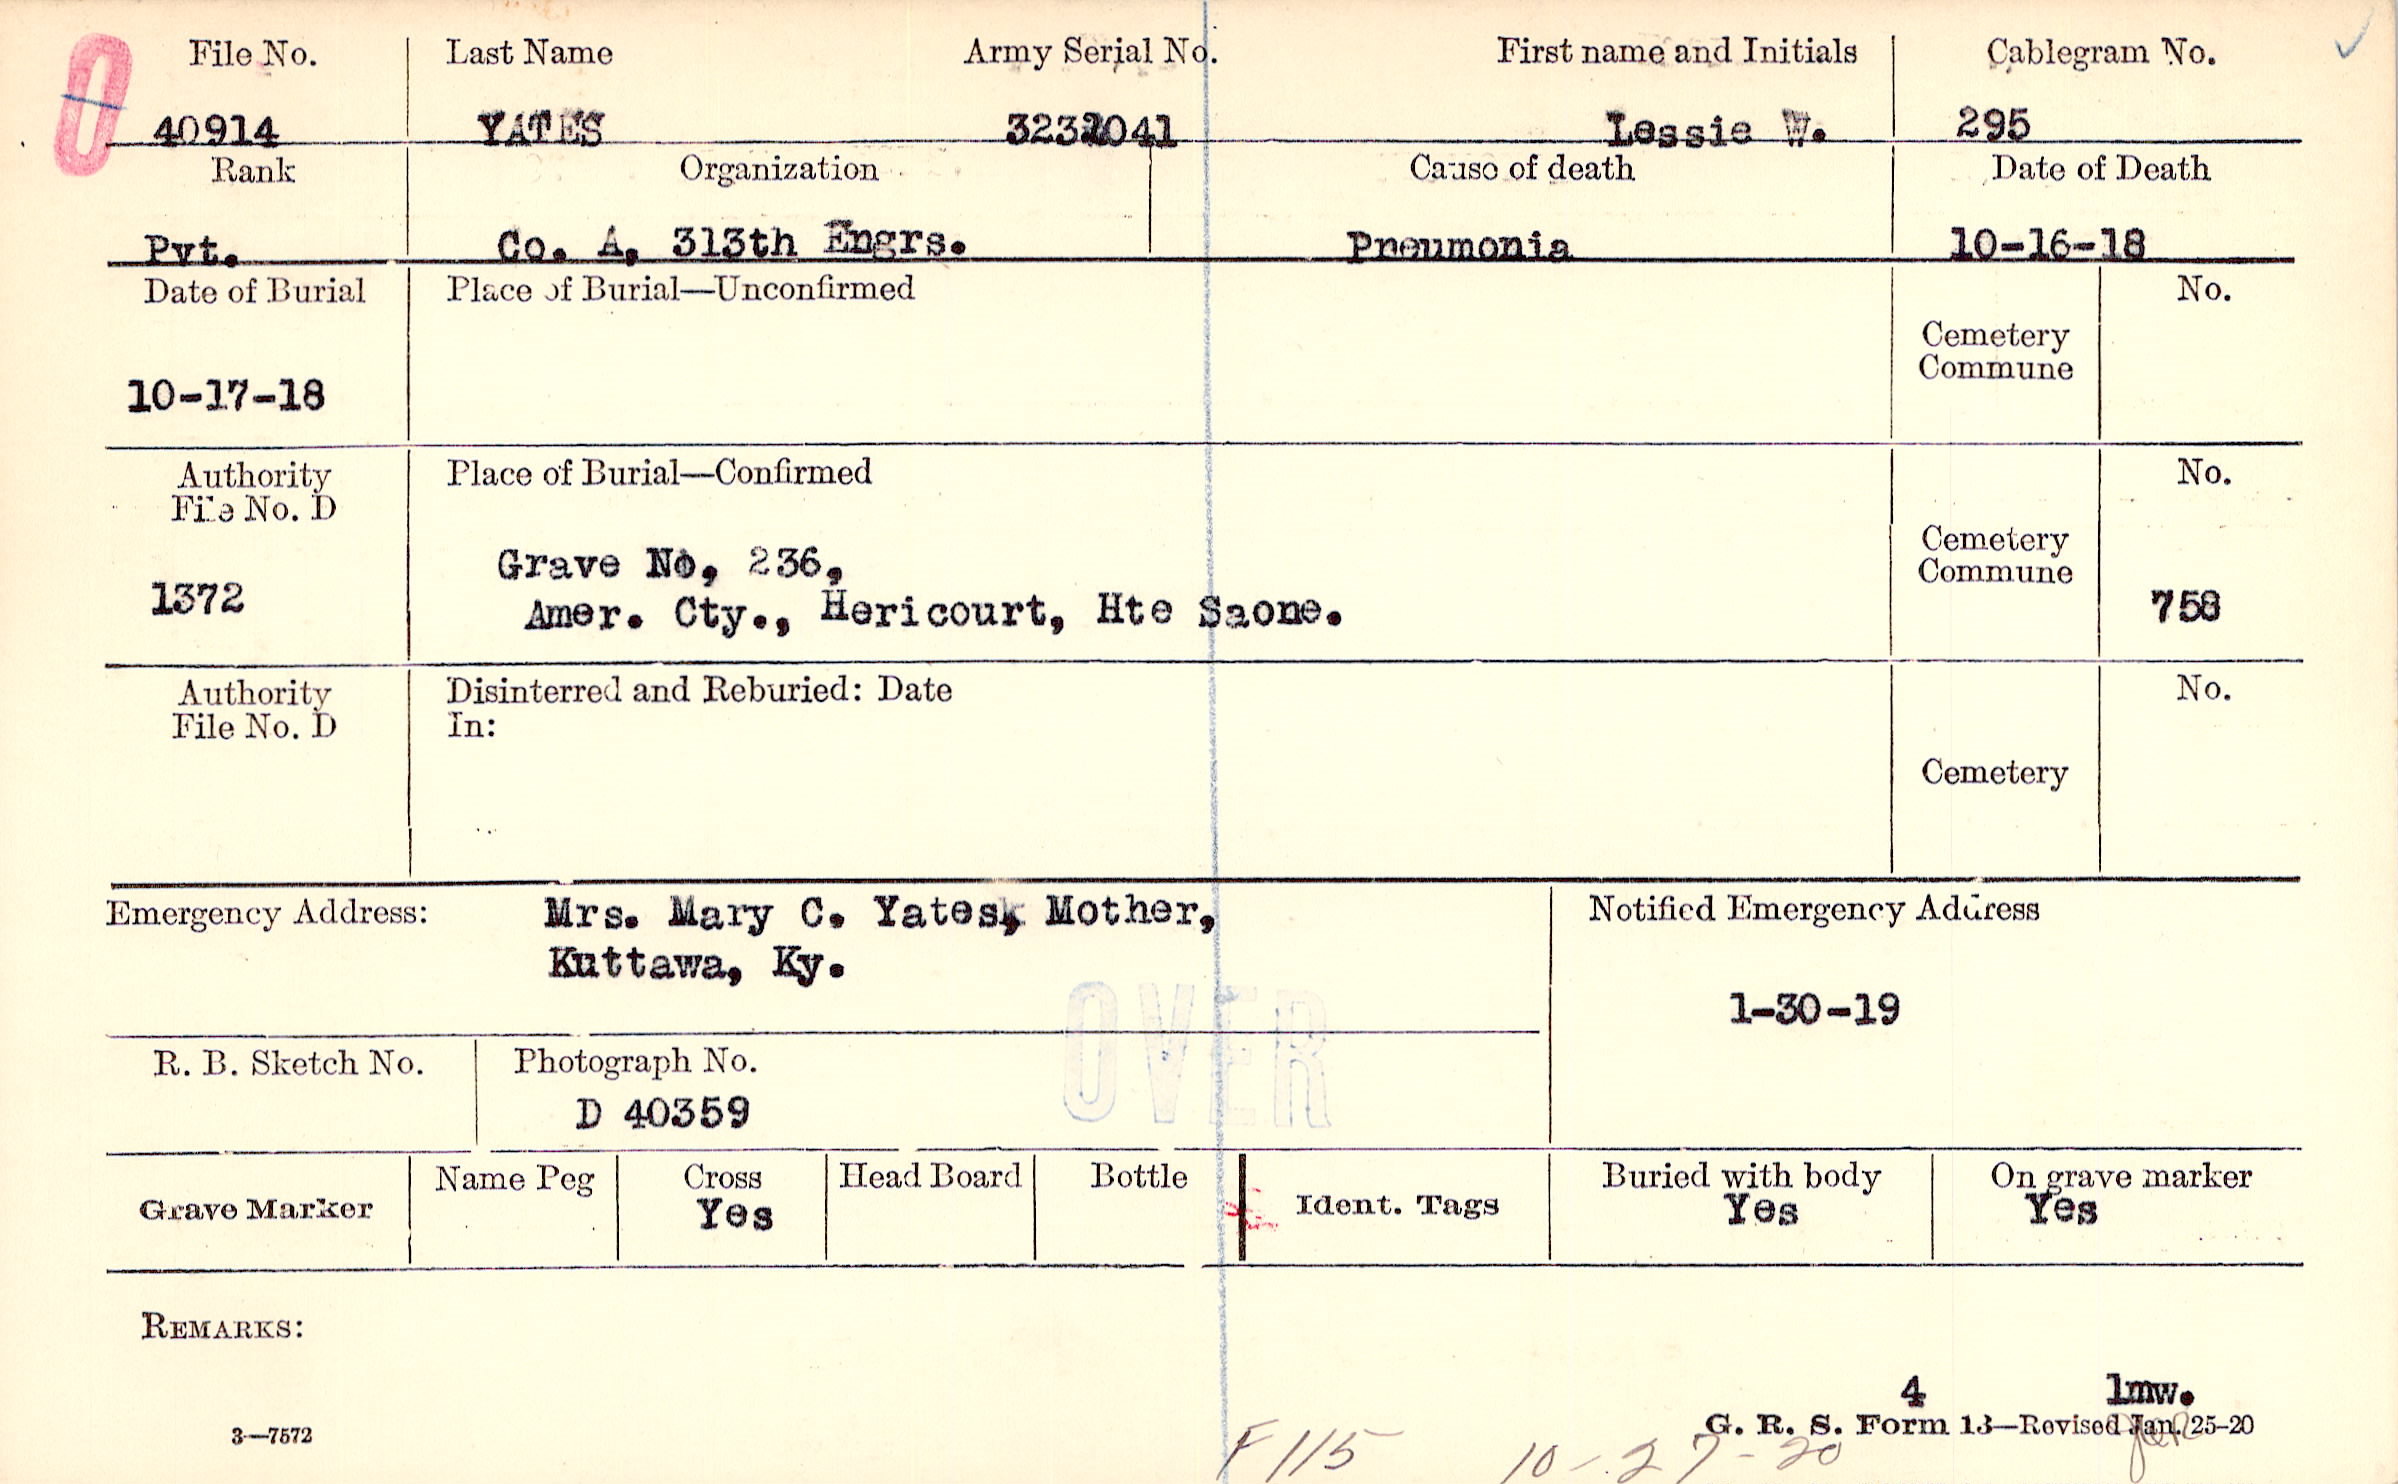 File No. Last Name Army Serial No. First name and Initials Cablegram No.
40914 YATES Lessie W. 295
Rank Organization Cause of death Date of Death
Pvt. Co. A, 313th Engrs. Pneumonia 10-16-18
Date of Burial Place of Burial—Unconfirmed No.
Cemetery
Commune
10-17-18
Authority Place of Burial—Confirmed No.
File No. D
Cemetery
Grave No, 236,
Commune
1372 758
Amer. Cty., Hericourt, Hte Saone.
Authority Disinterred and Reburied: Date No.
File No. D In:
Cemetery
Emergency Address: Mrs. Mary C. Yates, Mother, Notified Emergency Address
Kuttawa, Ky.
1-30-19
OVER
R. B. Sketch No. Photograph No.
D 40359
Name Peg Cross Head Board Bottle Buried with body On grave marker
Grave Marker Yes Ident. Tags Yes Yes
REMARKS:
4 lmw.
3—7572 G. R. S. Form 13—Revised Jan. 25-20
F 115 10-27-20